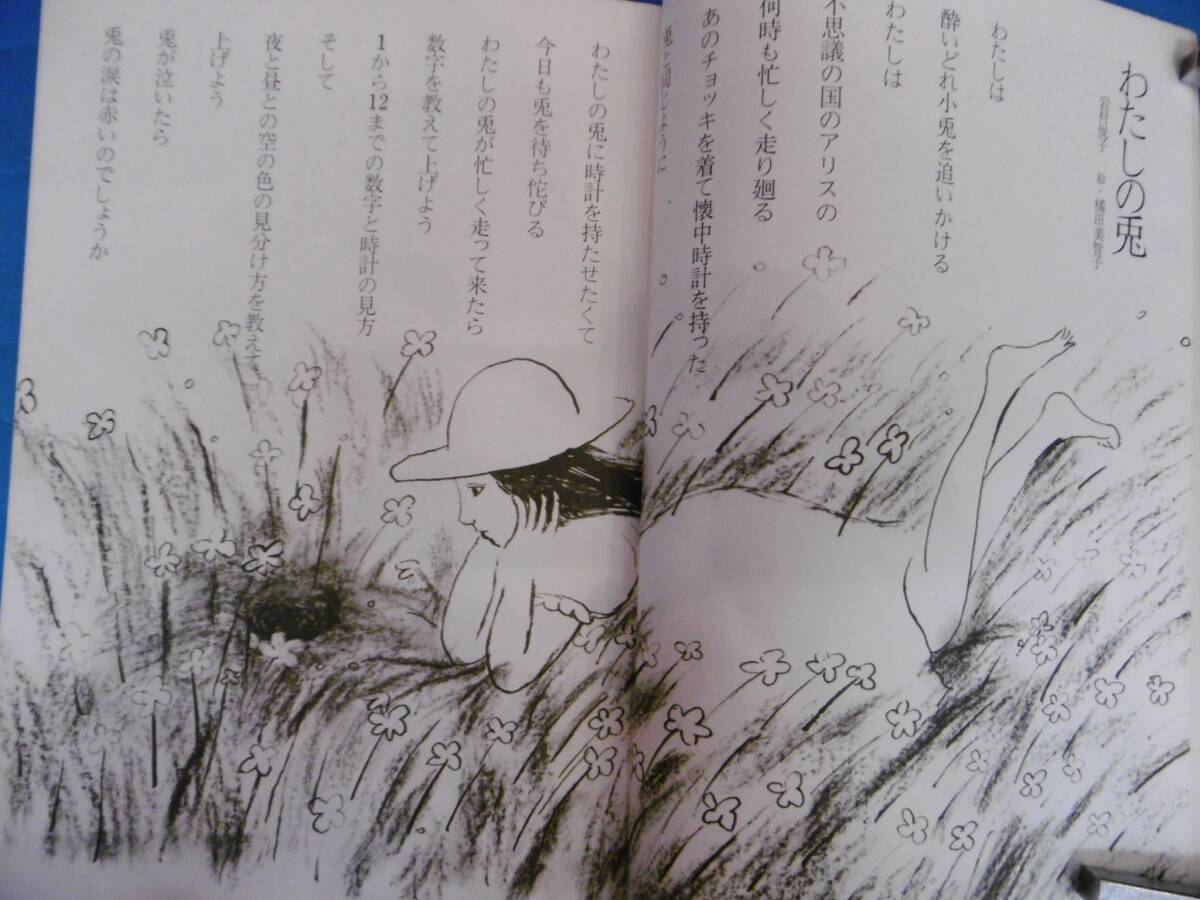 わたしの兎
岩村悦子　絵・橘田美智子
わたしは
酔いどれ小兎を追いかける
わたしは
不思議の国のアリスの
何時も忙しく走り廻る
あのチョッキを着て懐中時計を持った
兎と同じように
わたしの兎に時計を持たせたくて
今日も兎を待ち佗びる
わたしの兎が忙しく走って来たら
数字を教えて上げよう
1から12までの数字と時計の見方
そして
夜と昼との空の色の見分け方を教えて
上げよう
兎が泣いたら
兎の涙は赤いのでしょうか